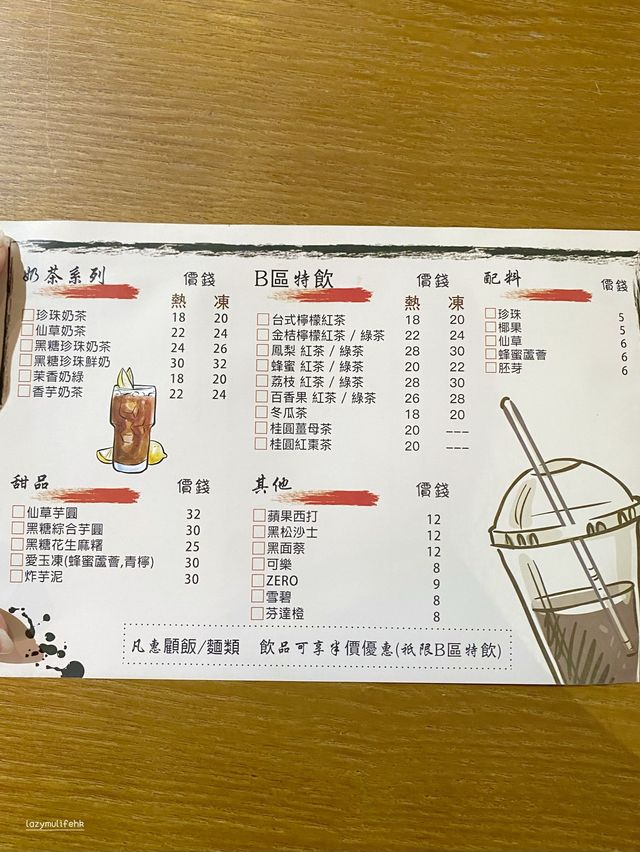 奶茶系列 價錢
熱 凍
珍珠奶茶 18 20
仙草奶茶 22 24
黑糖珍珠奶茶 24 26
黑糖珍珠鮮奶 30 32
茉香奶綠 18 20
香芋奶茶 22 24
B區特飲 價錢
熱 凍
台式檸檬紅茶 18 20
金桔檸檬紅茶 / 綠茶 22 24
鳳梨 紅茶 / 綠茶 28 30
蜂蜜 紅茶 / 綠茶 20 22
荔枝 紅茶 / 綠茶 28 30
百香果 紅茶 / 綠茶 26 28
冬瓜茶 18 20
桂圓薑母茶 20 ---
桂圓紅棗茶 20 ---
配料 價錢
珍珠 5
椰果 5
仙草 6
蜂蜜蘆薈 6
胚芽 6
甜品 價錢
仙草芋圓 32
黑糖綜合芋圓 30
黑糖花生麻糬 25
愛玉凍(蜂蜜蘆薈,青檸) 30
炸芋泥 30
其他 價錢
蘋果西打 12
黑松沙士 12
黑面蔡 12
可樂 8
ZERO 9
雪碧 8
芬達橙 8
凡惠顧飯/麵類 飲品可享半價優惠(衹限B區特飲)
lazymulifehk